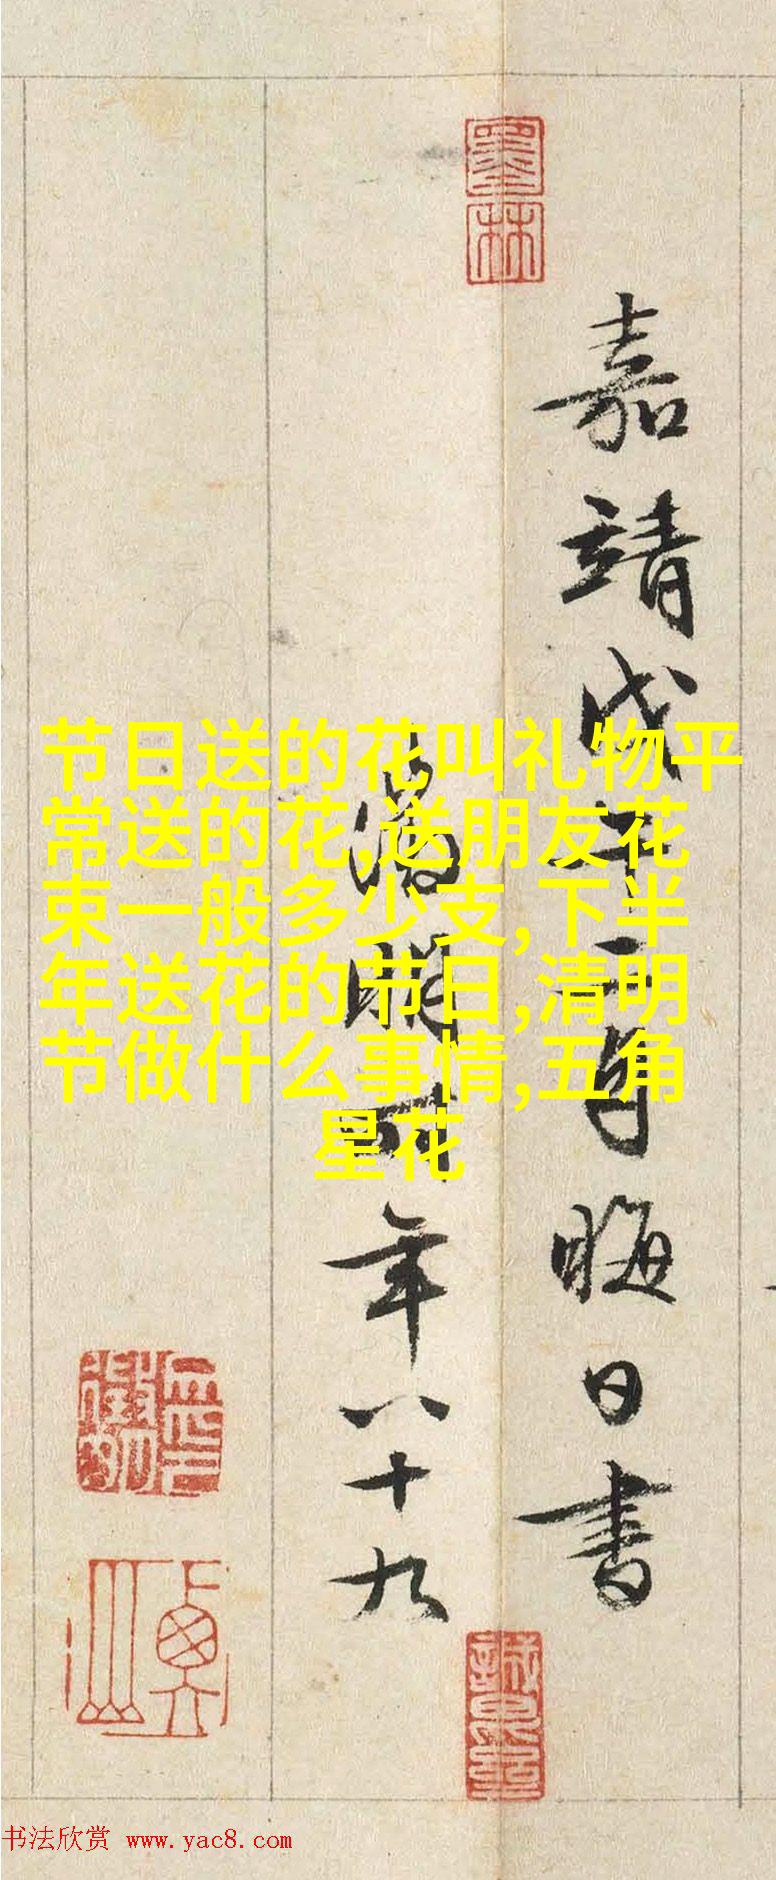 嘉靖戊午二月晦日書
徵明時年八十九
墨林
节日送的花叫礼物平
常送的花,送朋友花
束一般多少支,下半
年送花的节日,清明
节做什么事情,五角
星花
书法欣赏 www.yac8.com